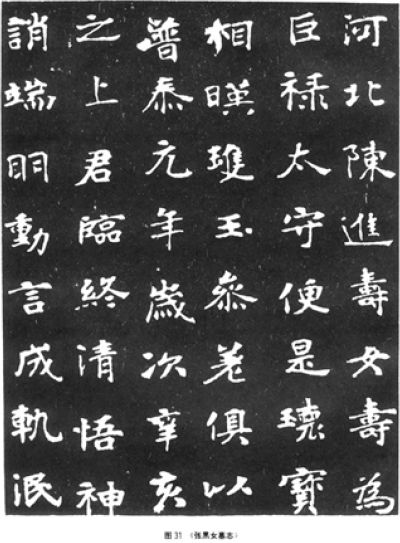 河北陳進壽女壽為
巨禄太守便是瓌寶
相暎瓘玉参差俱以
普泰元年歲次辛亥
之上君臨終清悟神
誚端明動言成軌泯
图31 《张黑女墓志》